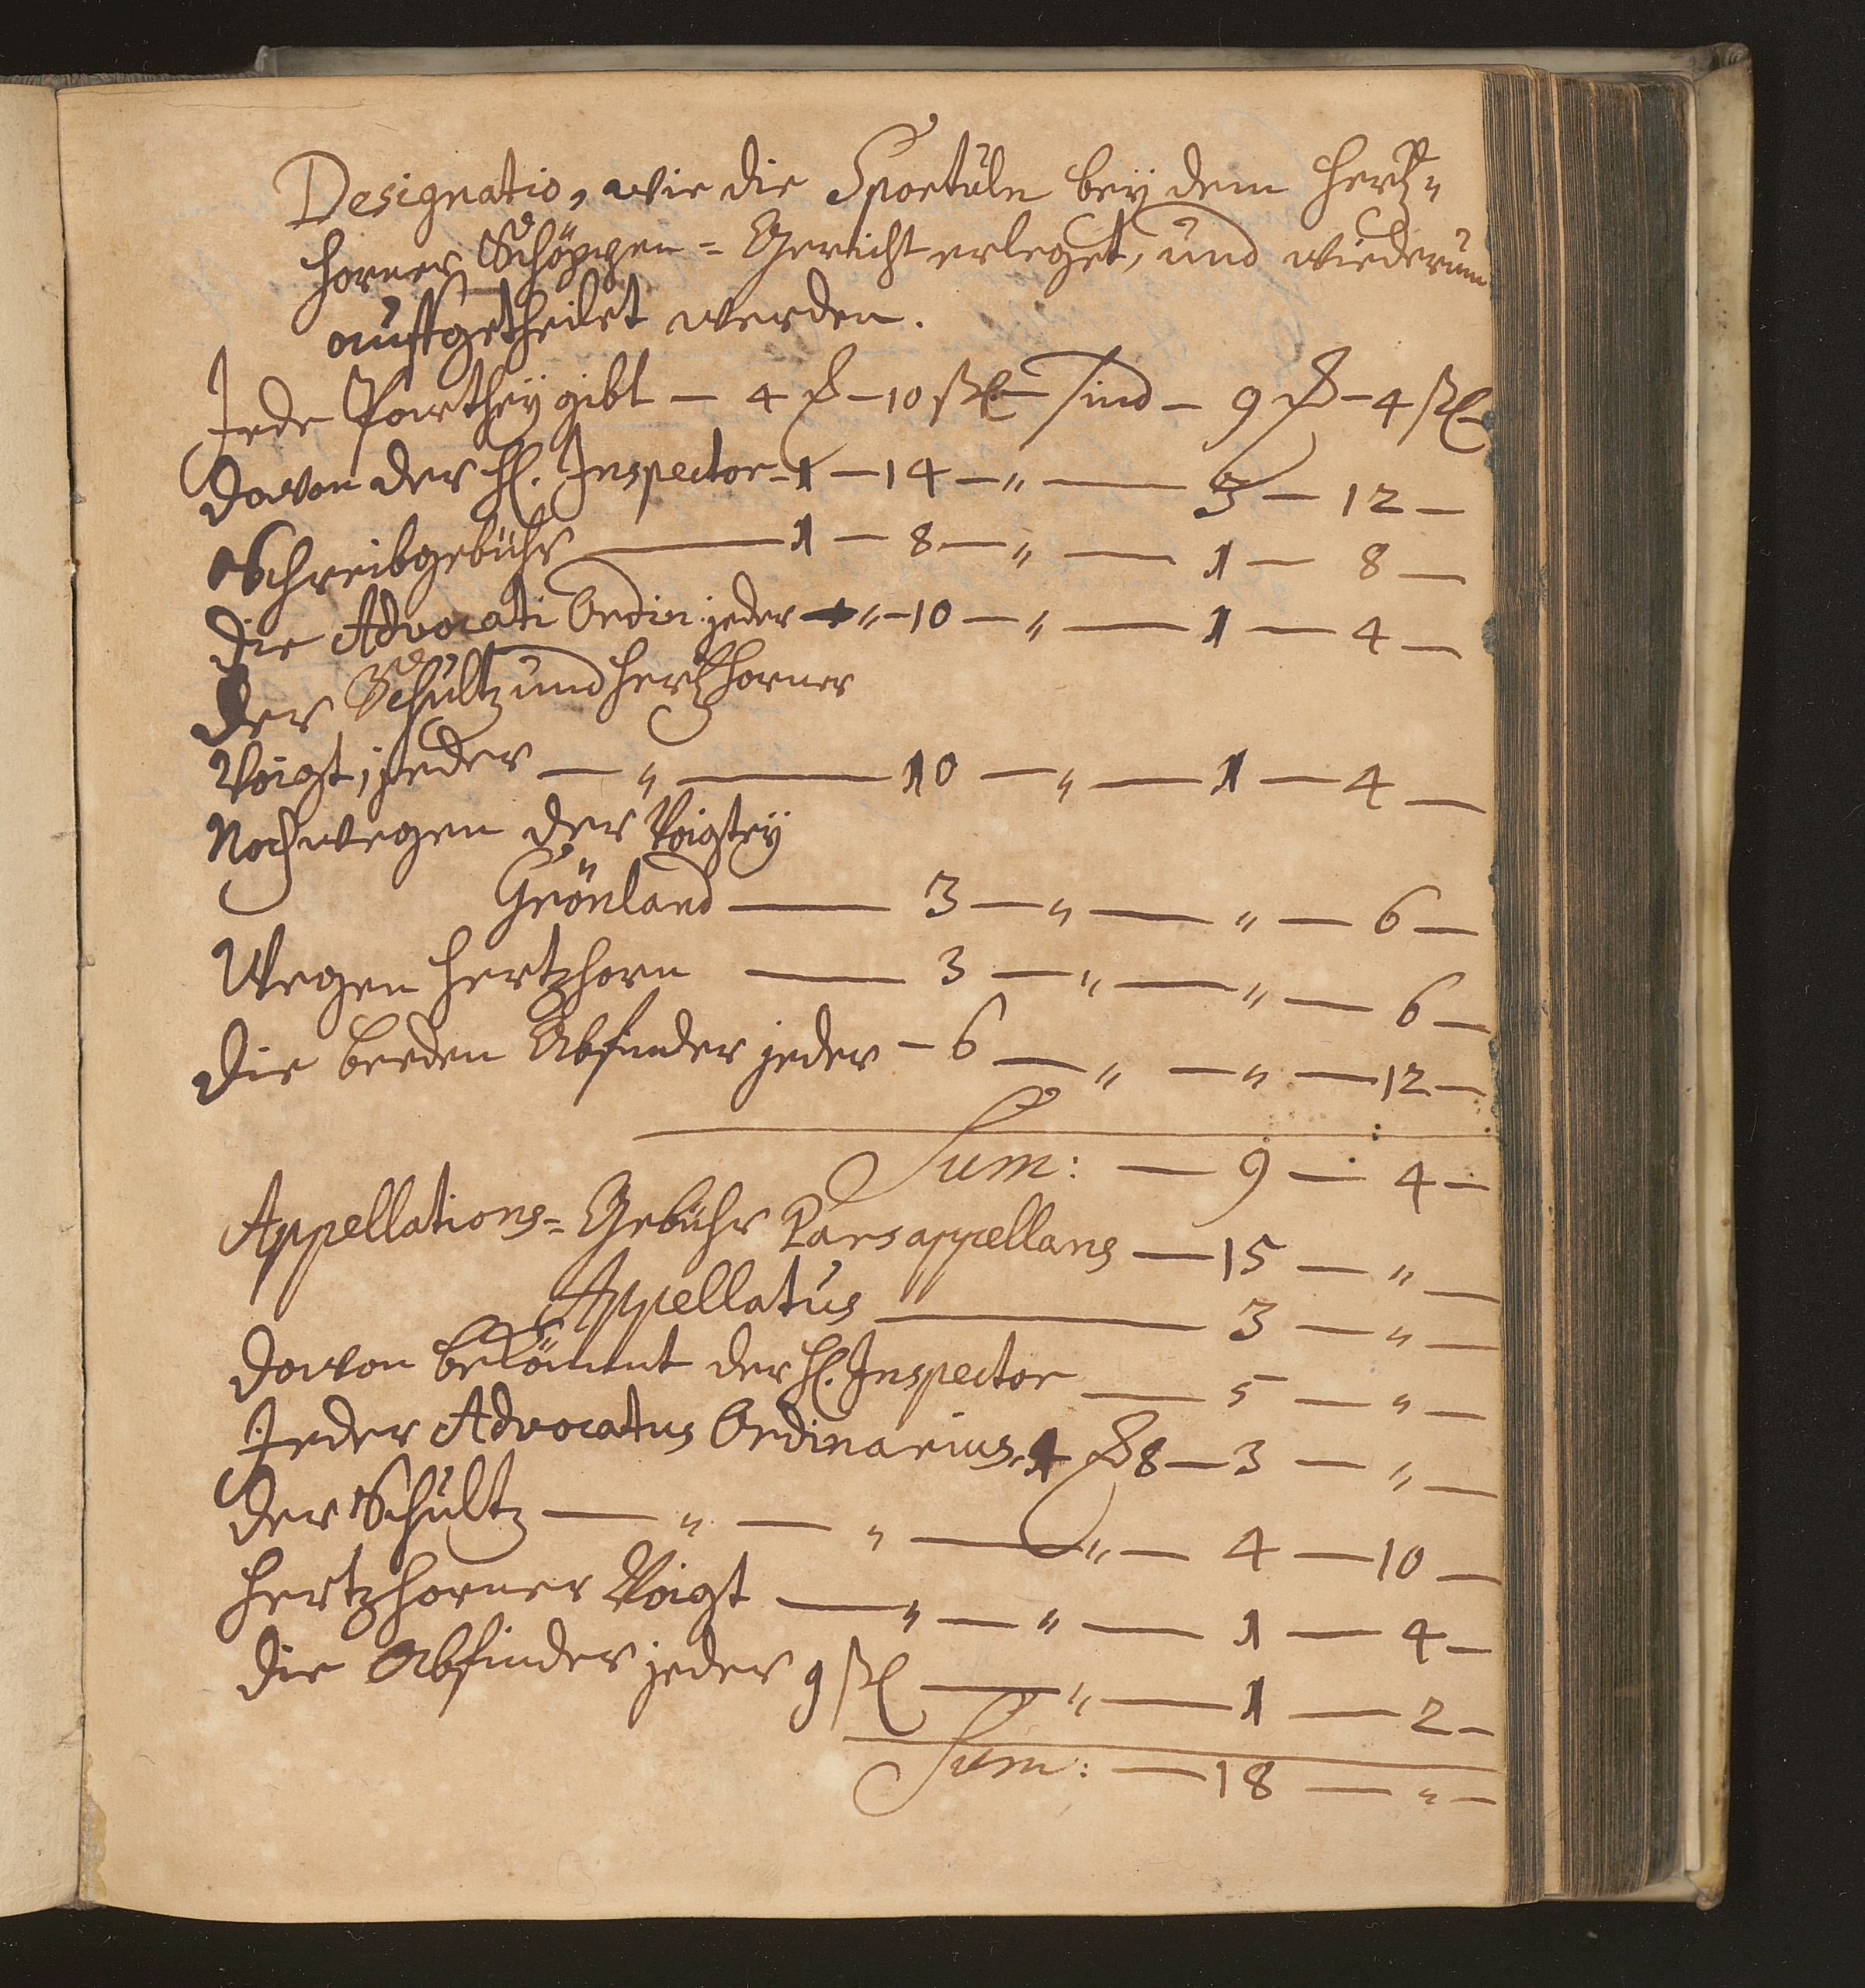 Designatio, wie die Sportuln bey dem Hertz-
horner Schöppen-Gericht erleget, und wiederum
auffgetheilet werden.
Jede Parthey gibt — 4 ₰ — 10 ßl — sind — 9 ₰ — 4 ßl
Davon der H. Inspector — 1 — 14 — " — 3 — 12 —
Schreibgebühr — 1 — 8 — " — 1 — 8 —
Die Advocati Ordin: jeder — " — 10 — " — 1 — 4 —
Der Schultz und Hertzhorner
Voigt, jeder — " — 10 — " — 1 — 4 —
Noch wegen der Voigtey
Grönland — 3 — " — " — 6 —
Wegen Hertzhorn — 3 — " — " — 6 —
Die beeden Abfinder jeder — 6 — " — " — 12 —
Sum: — 9 — 4 —
Appellations-Gebühr Pars appellans — 15 — " —
Appellatus — 3 — " —
Davon bekömmt der H. Inspector — 5 — " —
Jeder Advocatus Ordinarius 1 ₰ 8 — 3 — " —
Der Schultz — " — " — " — 4 — 10 —
Hertzhorner Voigt — " — " — 1 — 4 —
Die Abfinder jeder 9 ßl — " — 1 — 2 —
Sum: — 18 — " —